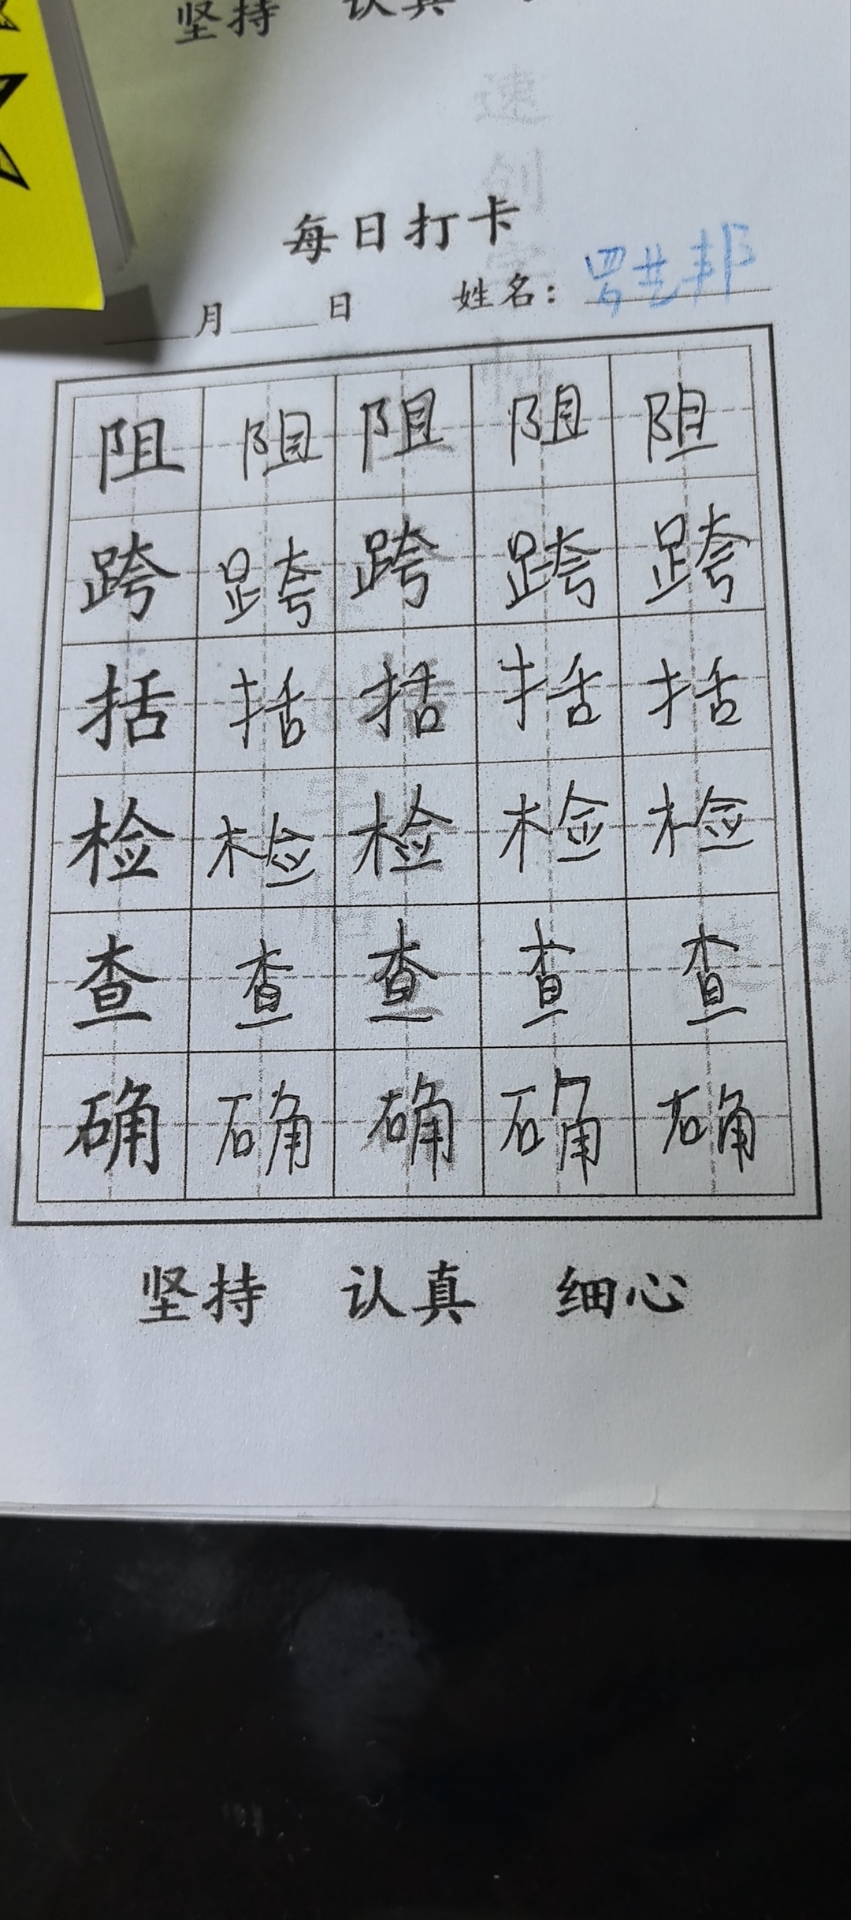 坚持 认真
速
创
每日打卡
月 日 姓名：罗艺邦
阻 阻 阻 阻 阻
跨 跨 跨 跨 跨
括 括 括 括 括
检 检 检 检 检
查 查 查 查 查
确 确 确 确 确
坚持 认真 细心